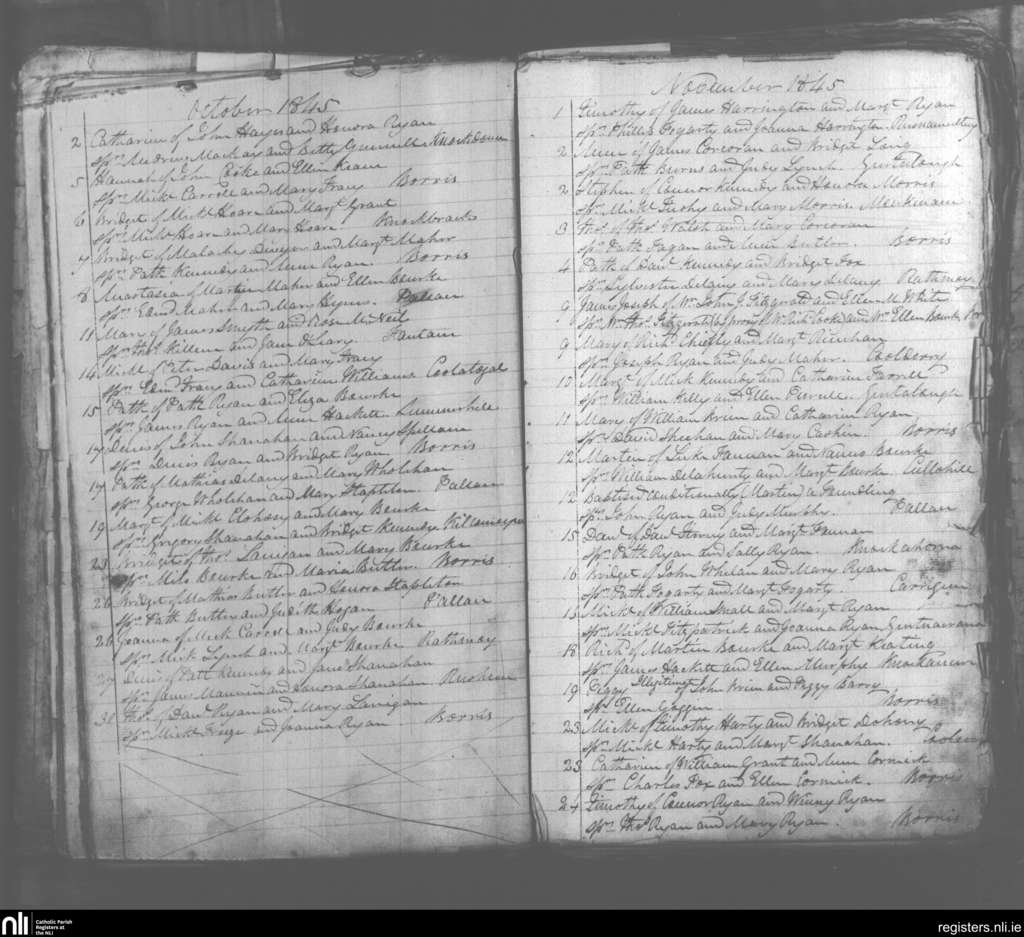 October 1845
2 Catharine of John Hayes and Honora Ryan
Spr. Andrew Mackay and Betty Gunnell Knockdown
5 Hannah of John Cooke and Ellen Keane
Spr. Mick Carroll and Mary Tracy Borris
6 Bridget of Mickl Hoare and Margt Grant
Spr. Michl Hoare and Mary Hoare.
7 Bridget of Malachi and Margt Maher
Spr. Path Kennedy and Anne Ryan. Borris
8 Anastasia of Martin Maher and Ellen Bourke
Spr. Edmd Maher and Mary Hynes. Pallan
11 Mary of James Smyth and Rose McNeil
Spr. Thos Killeen and Jane O'Leary.
14 Mick of Peter Davis and Mary Tracy
Spr. Tracy and Catharine Williams
15 Path of Path Ryan and Eliza Bourke
Spr. James Ryan and Anne Hackett Summerhill
17 Denis of John Shanahan and Nancy Spillane
Spr. Denis Ryan and Bridget Ryan Borris
17 Path of Mathias Delany and Mary Wholehan
Spr. George Wholehan and Mary Stapleton Pallan
19 Margt of Mickl and Mary Bourke
Spr. Grigory Shanahan and Bridget Kennedy
23 Bridget of Thos. Lanigan and Mary Bourke
Spr. Milo Bourke and Maria Butler. Borris
26 Bridget of Mathias Butler and Honora Stapleton
Spr. Path Butler and Judith Hogan Pallan
26 Joanna of Mick Carroll and Judy Bourke
Spr. Mick Lynch and Margt Bourke Rathmoy
Denis of Path Kennedy and Jane Shanahan
Spr. James and Honora Shanahan
30 Thos. of Danl Ryan and Mary Lanigan
Spr. Mickl and Joanna Ryan Borris
November 1845
1 Timothy of James Harrington and Margt Ryan
Spr. Phillip Fogarty and Joanna Harrington
2 Anne of James Corcoran and Bridget Long
Spr. Path Burns and Judy Lynch.
2 Stephen of Connor Kennedy and Honora Morris
Spr. Mickl and Mary Morris
3 Thos. of Thos. Walsh and Mary Corcoran
Spr. Path Fagan and Anne Butler. Borris
4 Path of Danl Kennedy and Bridget Fox
Spr. Sylvester Delany and Mary Delany Rathmoy
9 James Joseph of Mr. John J. Fitzgerald and Ellen M. White
Spr. Mr. Thos. Fitzgerald (by proxy Mr. Richd Cooke) and Mrs. Ellen Bourke
9 Mary of Richd and Margt
Spr. Joseph Ryan and Judy Maher. Coolderry
10 Margt of Mick Kennedy and Catharine Farrell
Spr. William Kelly and Ellen Purcell.
11 Mary of William Brien and Catharine Ryan
Spr. David Sheehan and Mary Cashin. Borris
12 Martin of Luke Fannan and Nancy Bourke
Spr. William Delahunty and Margt Bourke Cullohill
12 Baptised Conditionally (Martin) a Foundling
Spr. John Ryan and Judy Murphy. Pallan
15 Danl of Danl and Margt Fannan
Spr. Path Ryan and Sally Ryan. Knockahorna
16 Bridget of John Whelan and Mary Ryan
Spr. Path Fogarty and Margt Fogarty
Mickl of William Small and Margt Ryan
Spr. Mickl Fitzpatrick and Joanna Ryan
18 Richd of Martin Bourke and Margt Keating
Spr. James Hackett and Ellen Murphy
19 Peggy Illegitime of John Brien and Peggy Barry
Spr. Ellen Borris
23 Mickl of Timothy Harty and Bridget Dohony
Spr. Mickl Harty and Margt Shanahan.
23 Catharine of William Grant and Anne Cormick
Spr. Charles Fox and Ellen Cormick. Borris
24 Timothy of Connor Ryan and Winny Ryan
Spr. Thos Ryan and Mary Ryan. Borris
nli Catholic Parish
Registers at
the NLI
registers.nli.ie